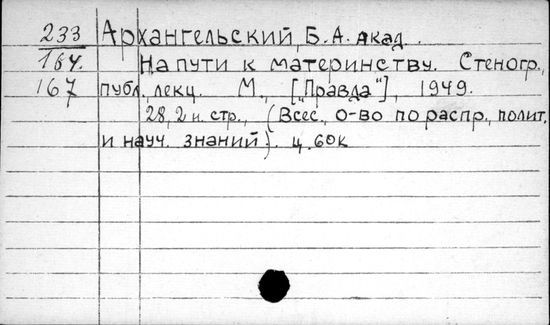 233 Архангельский, Б.А. акад.
164. На пути к материнству. Стеногр.
167 публ. лекц. М., ["Правда"], 1949.
28, 2 н. стр., (Всес. о-во по распр. полит.
и науч. знаний). ц. 60к